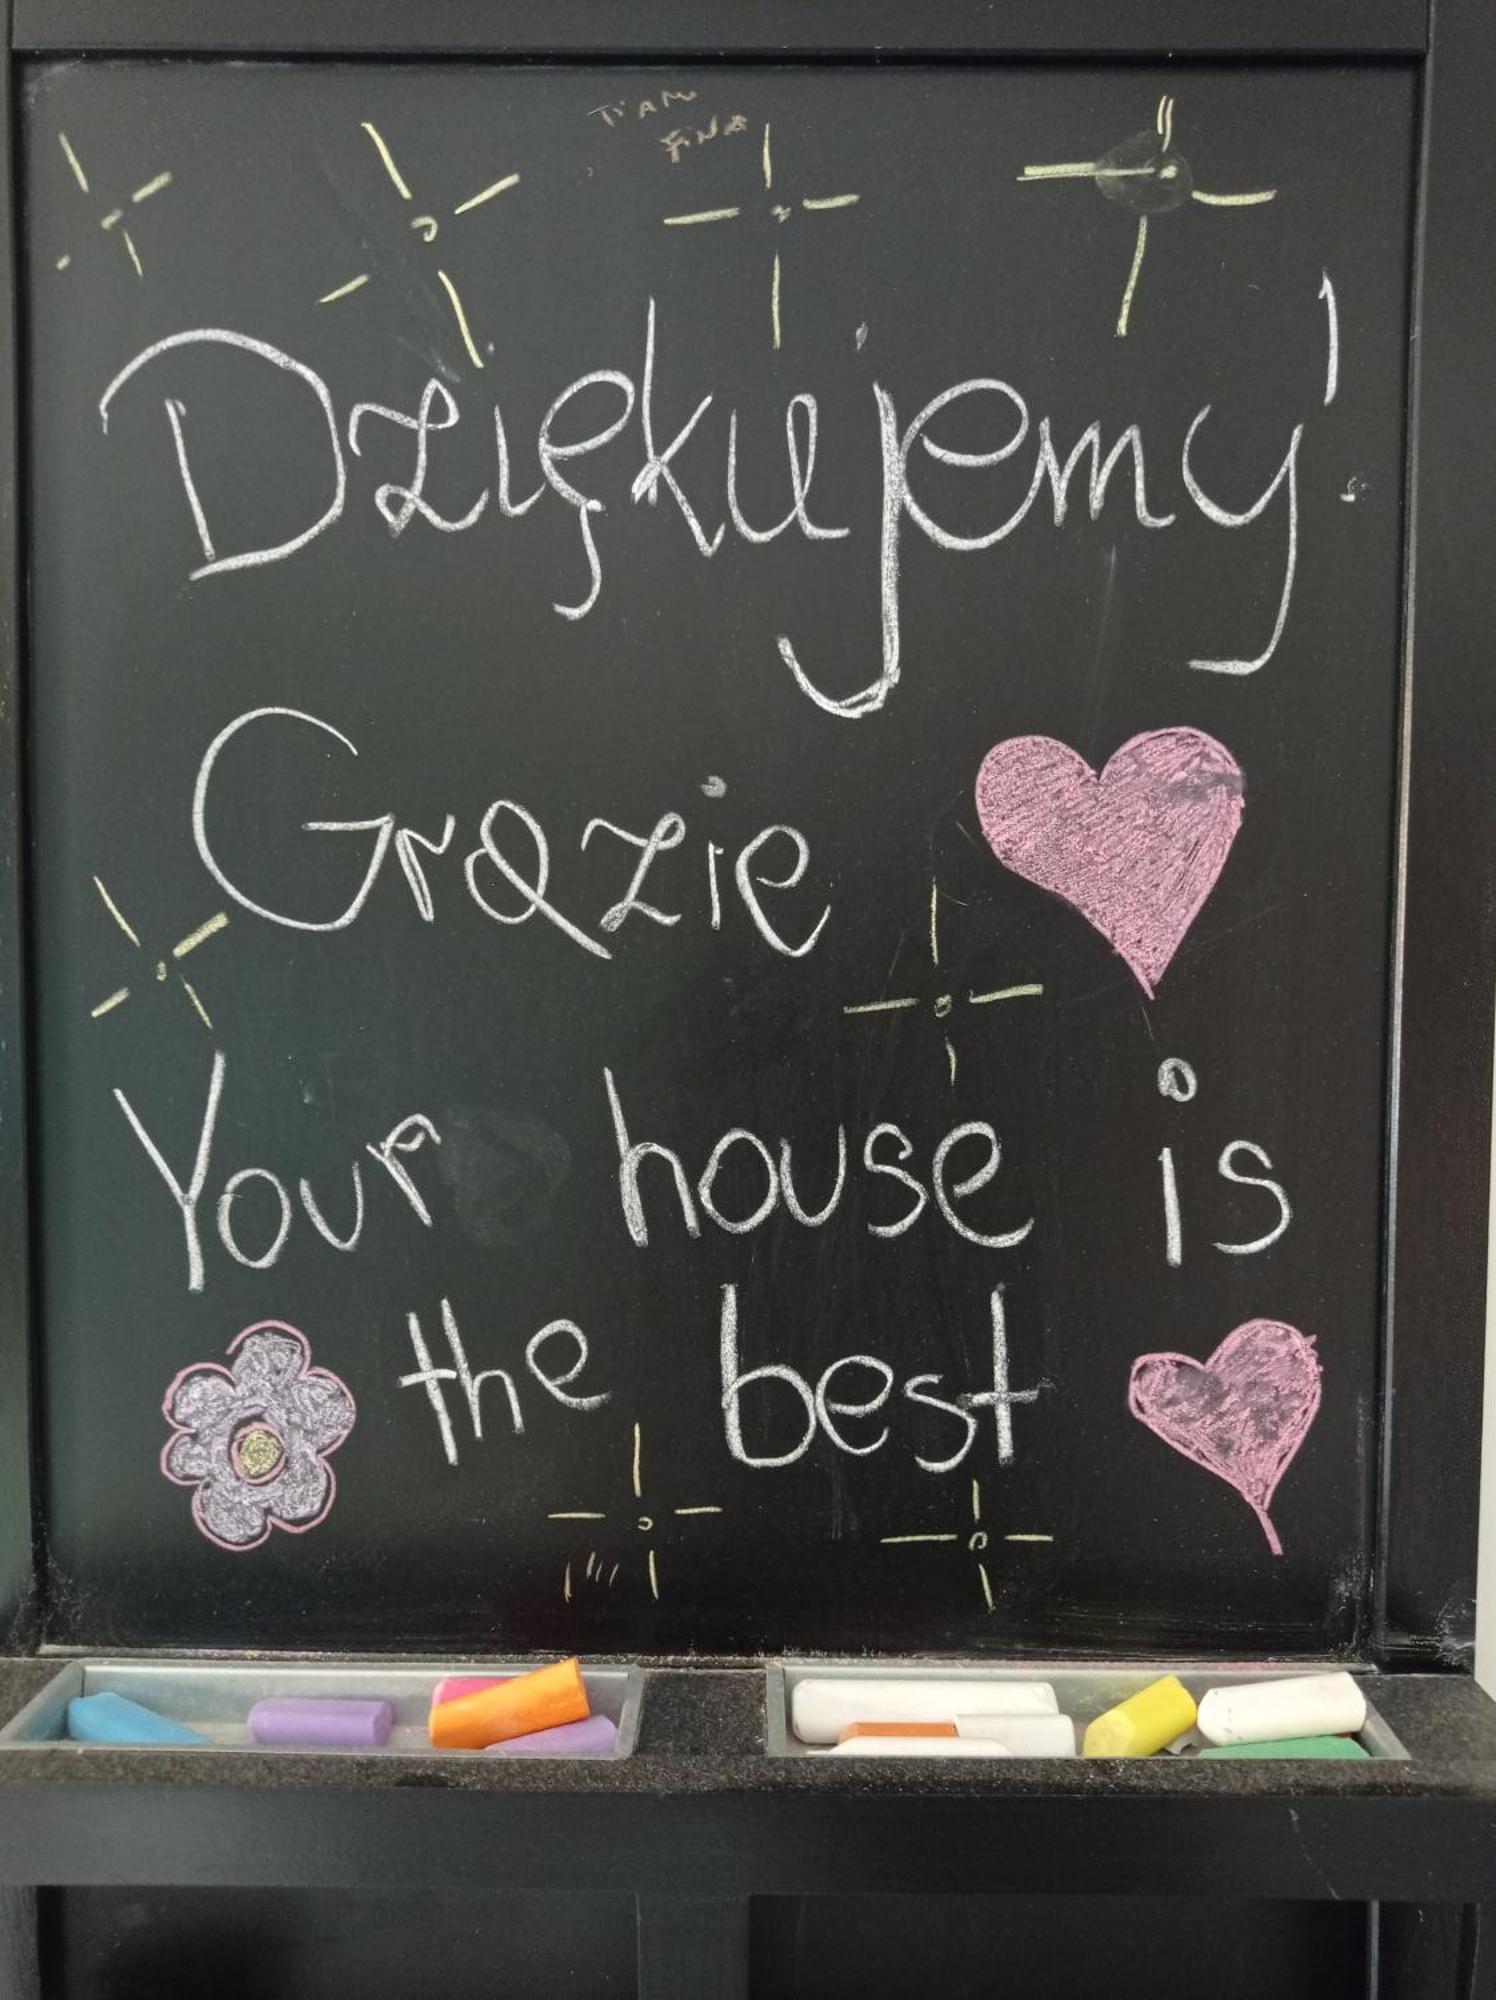 Dziękujemy!
Grazie
Your house is
the best